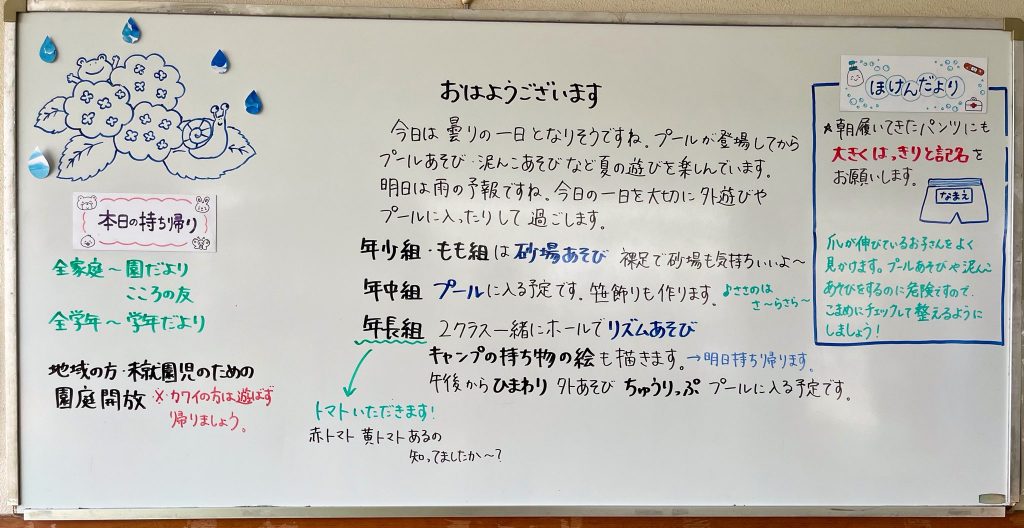 おはようございます
今日は曇りの一日となりそうですね。プールが登場してから
プールあそび・泥んこあそびなど夏の遊びを楽しんでいます。
明日は雨の予報ですね。今日の一日を大切に外遊びや
プールに入ったりして過ごします。
年少組・もも組は砂場あそび 裸足で砂場も気持ちいいよ～
年中組 プールに入る予定です。笹飾りも作ります。♪ささのは
さ～らさら～
年長組 2クラス一緒にホールでリズムあそび
キャンプの持ち物の絵も描きます。→明日持ち帰ります。
午後からひまわり 外あそび ちゅうりっぷ プールに入る予定です。
トマトいただきます!
赤トマト 黄トマトあるの
知ってましたか～?
本日の持ち帰り
全家庭～園だより
こころの友
全学年～学年だより
地域の方・未就園児のための
園庭開放 ※・カワイの方は遊ばず
帰りましょう。
ほけんだより
★朝履いてきたパンツにも
大きくはっきりと記名を
お願いします。
なまえ
爪が伸びているお子さんをよく
見かけます。プールあそびや泥んこ
あそびをするのに危険ですので、
こまめにチェックして整えるように
しましょう!